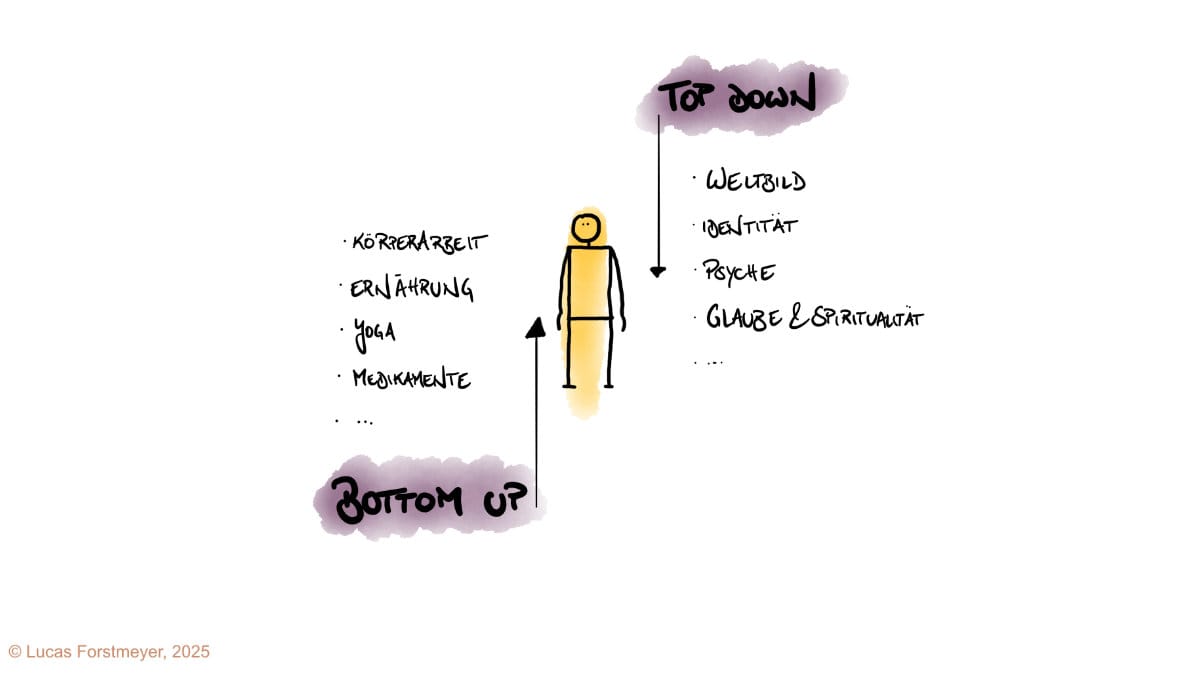 TOP DOWN
· WELTBILD
· IDENTITÄT
· PSYCHE
· GLAUBE & SPIRITUALITÄT
· ...
· KÖRPERARBEIT
· ERNÄHRUNG
· YOGA
· MEDIKAMENTE
· ...
BOTTOM UP
© Lucas Forstmeyer, 2025